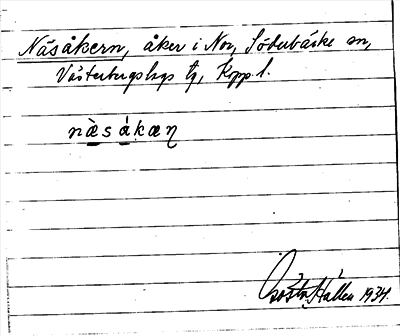 Näsåkern, åker i Nor, Söderbärke sn,
Västerbergslags tg, Kopp. l.
næ̀sákæɳ
Gösta Hallén 1934.